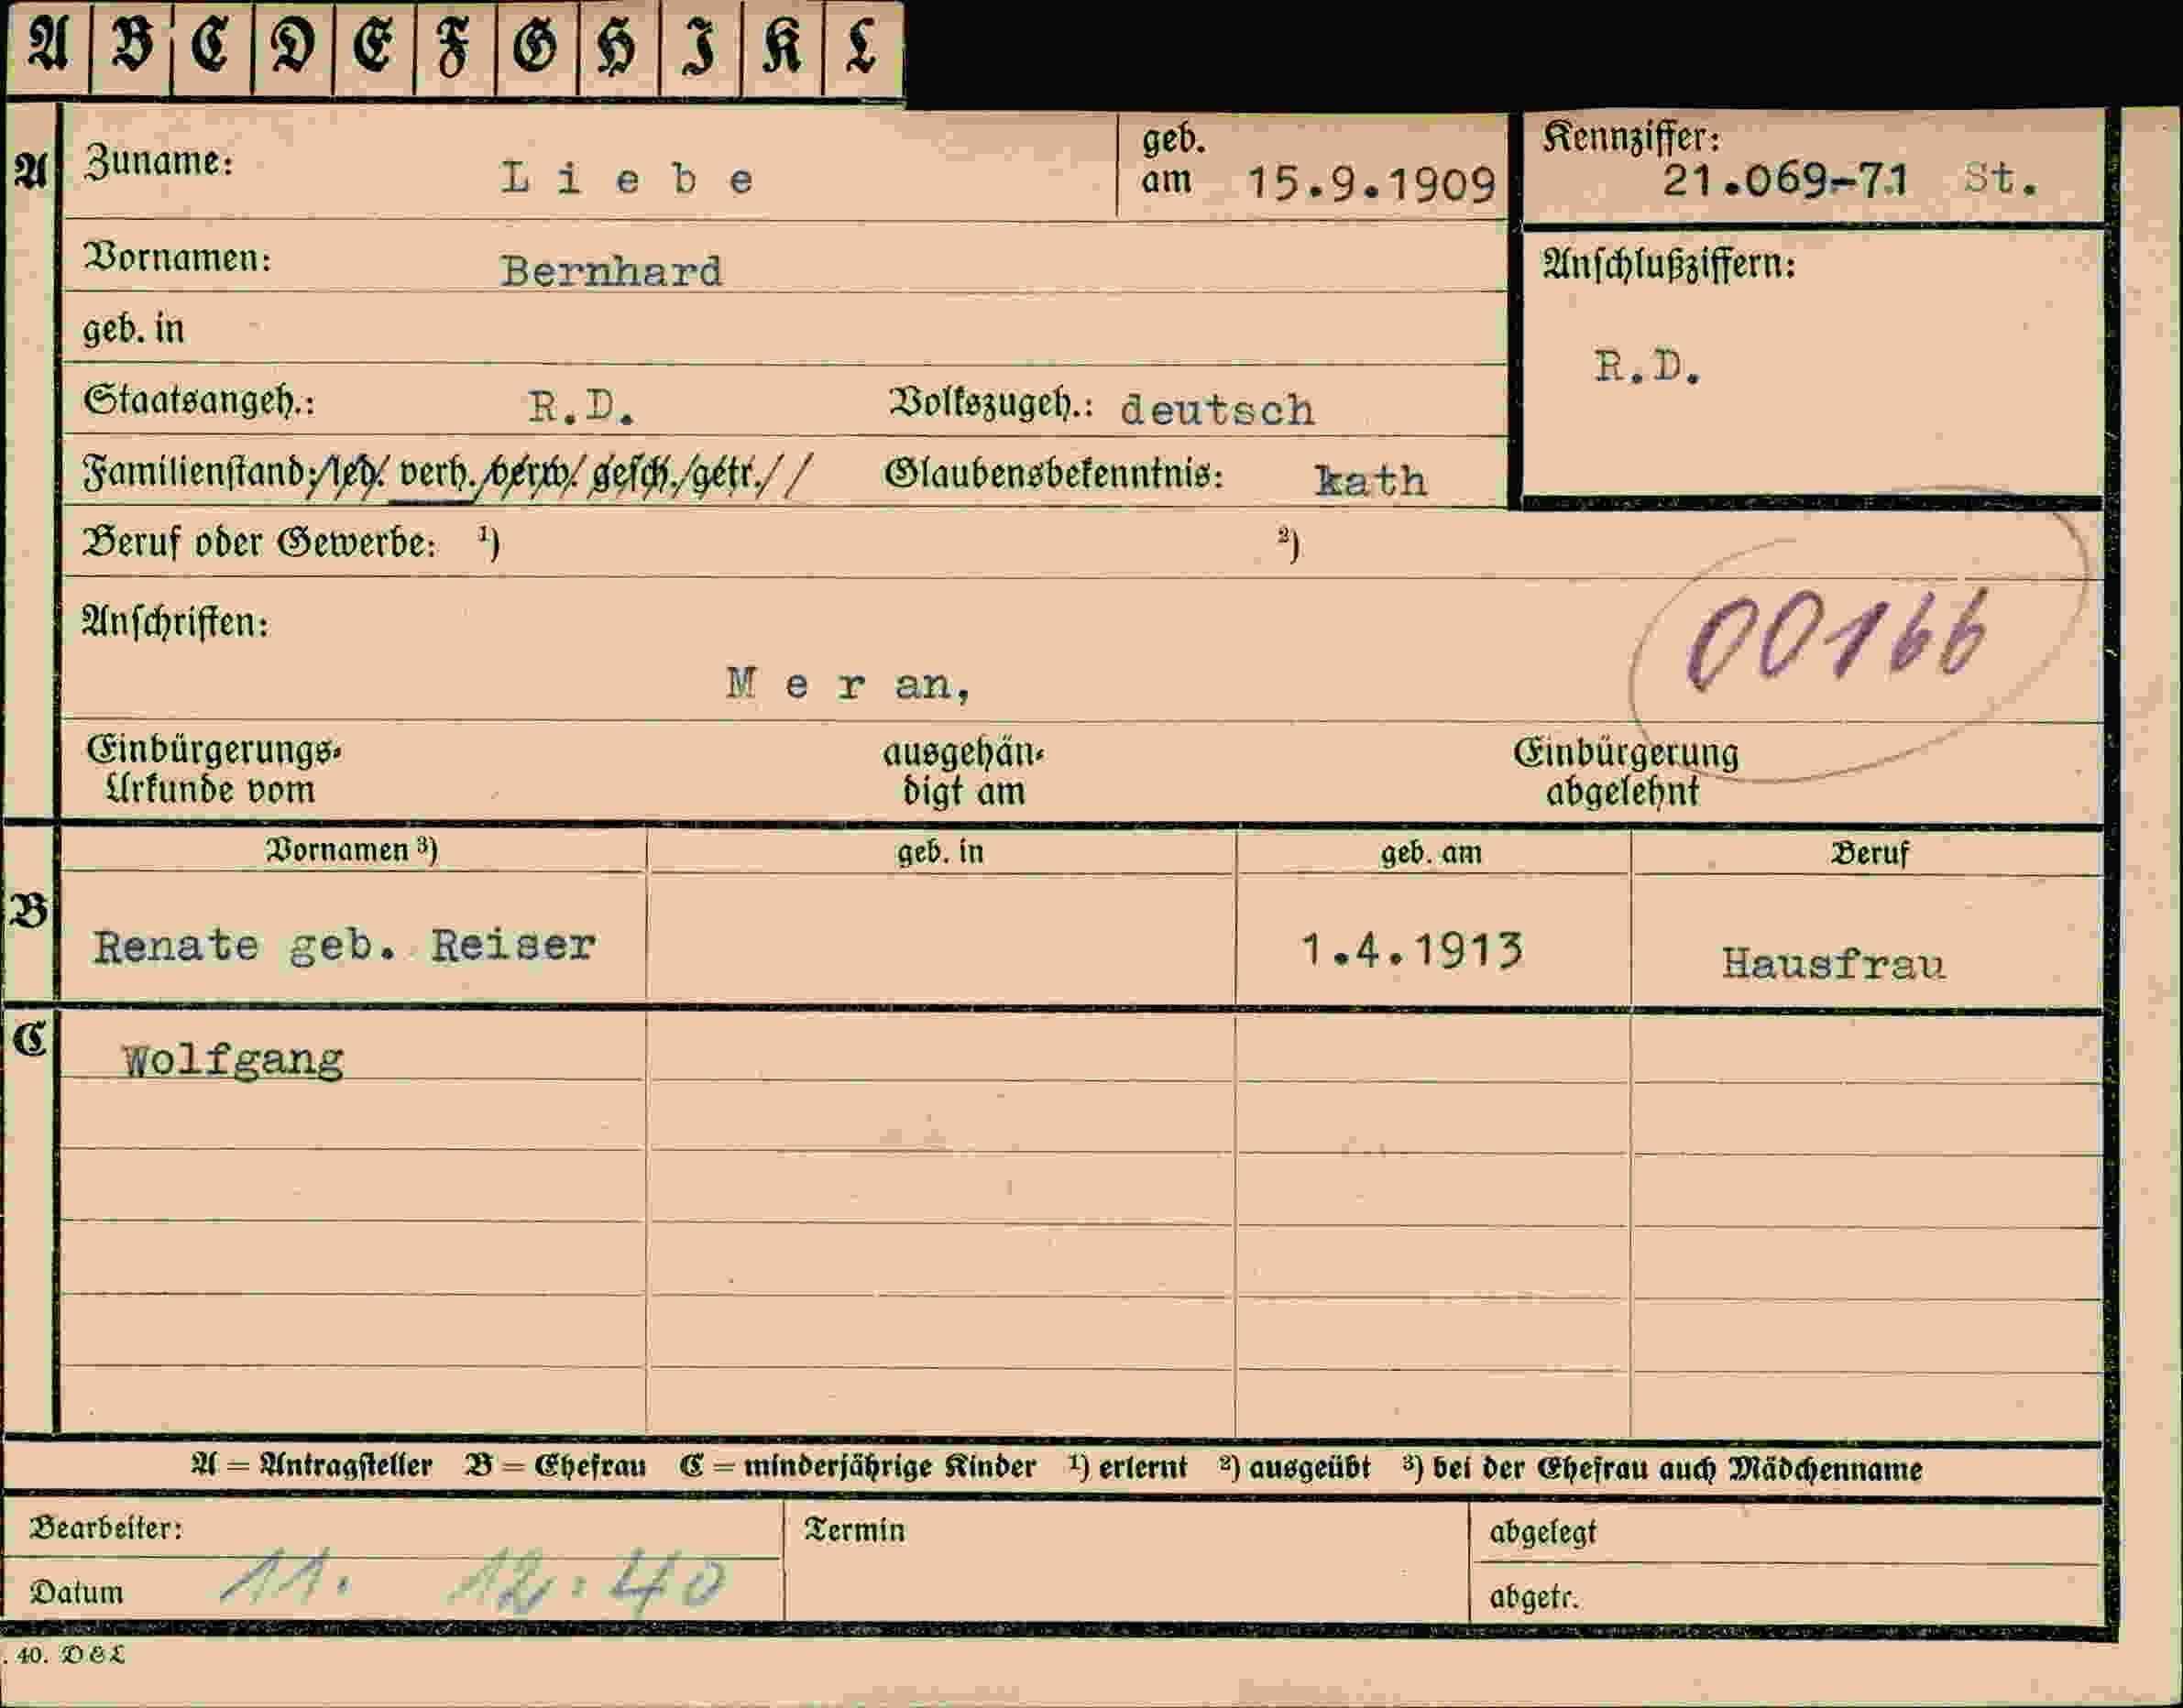 A B C D E F G H I K L
A Zuname: Liebe geb. am 15.9.1909 Kennziffer: 21.069-71 St.
Vornamen: Bernhard Anschlußziffern:
geb. in
R.D.
Staatsangeh.: R.D. Volkszugeh.: deutsch
Familienstand: led. verh. verw. gesch. getr. Glaubensbekenntnis: kath
Beruf oder Gewerbe: ¹) ²)
00166
Anschriften:
Meran,
Einbürgerungs- ausgehän- Einbürgerung
Urkunde vom digt am abgelehnt
Vornamen ³) geb. in geb. am Beruf
B Renate geb. Reiser 1.4.1913 Hausfrau
C Wolfgang
A = Antragsteller B = Ehefrau C = minderjährige Kinder ¹) erlernt ²) ausgeübt ³) bei der Ehefrau auch Mädchenname
Bearbeiter: Termin abgelegt
Datum 11. 12. 40 abgetr.
. 40. D & L